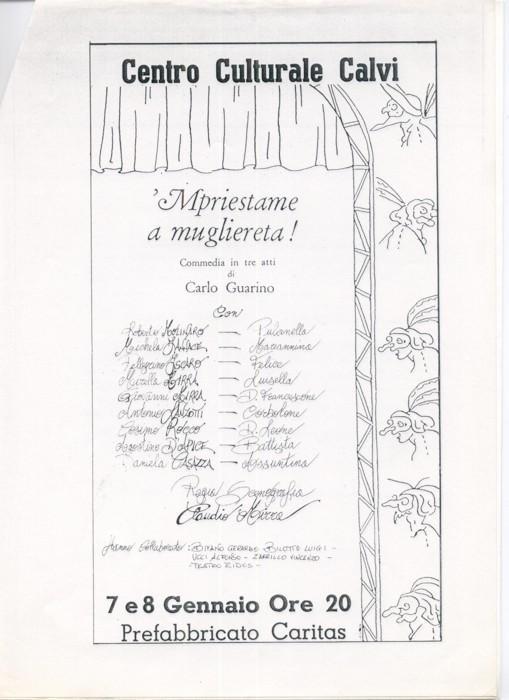 Centro Culturale Calvi
'Mpriestame
a mugliereta!
Commedia in tre atti
di
Carlo Guarino
Con
Roberto MOLINARO — Pulcinella
Maschela — Mariannina
Pellegrino — Felice
Mirella MIRRA — Luisella
Giovanni MIRRA — D. Francescone
Antonio — Corbolone
Cosimo ROCCO — D. Leone
Agostino D'APICE — Battista
Daniela CASAZZA — Assuntina
Regia Scenografia
Claudio Mirra
Hanno Collaborato: GERARDO BILOTTO LUIGI -
UCCI ALFONSO - ZARRILLO VINCENZO -
TEATRO EIDOS -
7 e 8 Gennaio Ore 20
Prefabbricato Caritas